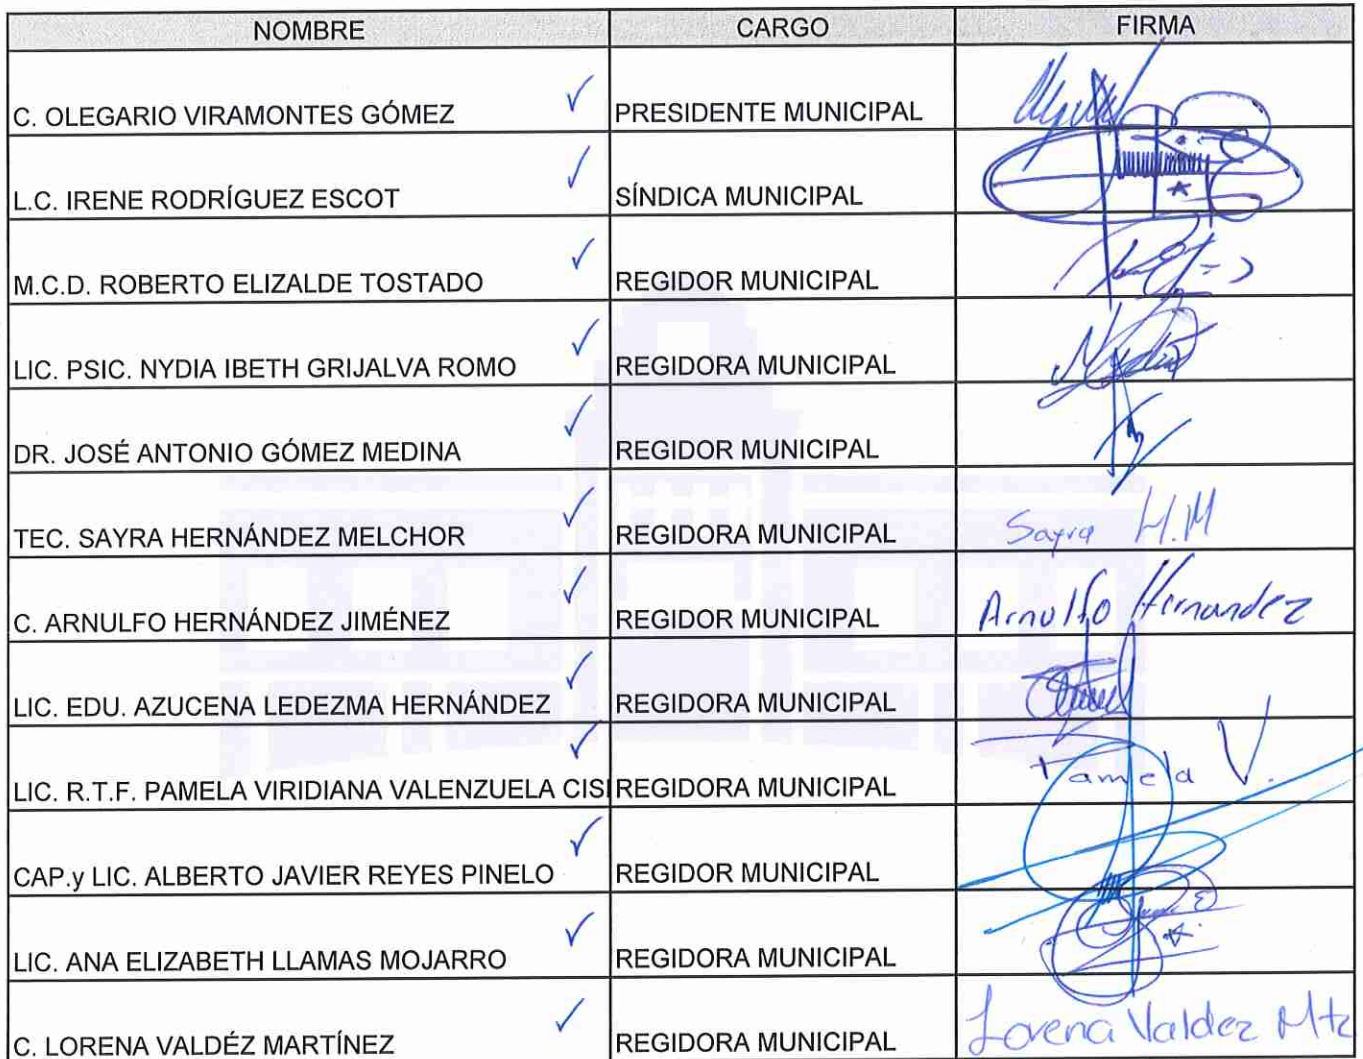 NOMBRE CARGO FIRMA
C. OLEGARIO VIRAMONTES GÓMEZ PRESIDENTE MUNICIPAL
L.C. IRENE RODRÍGUEZ ESCOT SÍNDICA MUNICIPAL
M.C.D. ROBERTO ELIZALDE TOSTADO REGIDOR MUNICIPAL
LIC. PSIC. NYDIA IBETH GRIJALVA ROMO REGIDORA MUNICIPAL Nydia
DR. JOSÉ ANTONIO GÓMEZ MEDINA REGIDOR MUNICIPAL
TEC. SAYRA HERNÁNDEZ MELCHOR REGIDORA MUNICIPAL Sayra H.M
C. ARNULFO HERNÁNDEZ JIMÉNEZ REGIDOR MUNICIPAL Arnulfo Hernandez
LIC. EDU. AZUCENA LEDEZMA HERNÁNDEZ REGIDORA MUNICIPAL
LIC. R.T.F. PAMELA VIRIDIANA VALENZUELA CISI REGIDORA MUNICIPAL Pamela V.
CAP.y LIC. ALBERTO JAVIER REYES PINELO REGIDOR MUNICIPAL
LIC. ANA ELIZABETH LLAMAS MOJARRO REGIDORA MUNICIPAL
C. LORENA VALDÉZ MARTÍNEZ REGIDORA MUNICIPAL Lorena Valdez Mtz